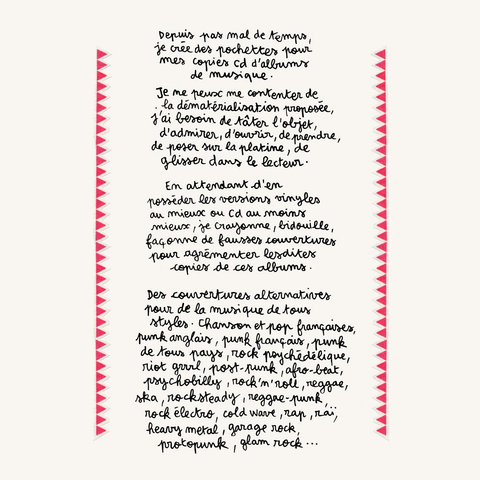 Depuis pas mal de temps,
je crée des pochettes pour
mes copies Cd d'albums
de musique.
Je me peux me contenter de
la dématérialisation proposée,
j'ai besoin de tâter l'objet,
d'admirer, d'ouvrir, de prendre,
de poser sur la platine, de
glisser dans le lecteur.
En attendant d'en
posséder les versions vinyles
au mieux ou Cd au moins
mieux, je crayonne, bidouille,
façonne de fausses couvertures
pour agrémenter lesdites
copies de ces albums.
Des couvertures alternatives
pour de la musique de tous
styles. Chanson et pop françaises,
punk anglais, punk français, punk
de tous pays, rock psychédélique,
riot grrrl, post-punk, afro-beat,
psychobilly, rock'n'roll, reggae,
ska, rocksteady, reggae-punk,
rock électro, cold wave, rap, raï,
heavy metal, garage rock,
protopunk, glam rock...